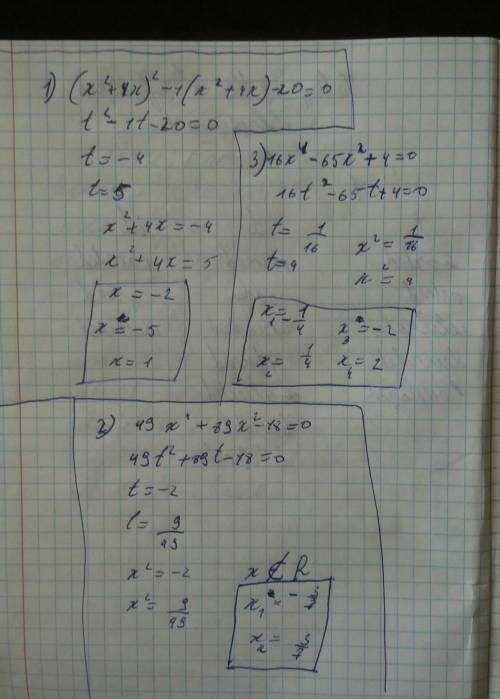 1) (x²+4x)²-1(x²+4x)-20=0
t²-1t-20=0
t=-4
t=5
x²+4x=-4
x²+4x=5
x=-2
x=-5
x=1
3) 16x⁴-65x²+4=0
16t²-65t+4=0
t=1/16
t=4
x²=1/16
x²=4
x₁=-1/4
x₂=1/4
x₃=-2
x₄=2
2) 49x⁴+89x²-18=0
49t²+89t-18=0
t=-2
t=9/49
x²=-2
x∉R
x²=9/49
x₁=-3/7
x₂=3/7